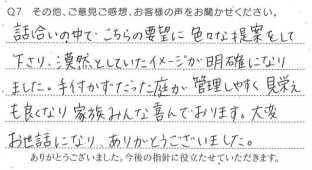 Q7 その他、ご意見ご感想、お客様の声をお聞かせください。
話合いの中で こちらの要望に 色々な提案をして
下さり、漠然としていたイメージが 明確になり
ました。手付かずだった庭が 管理しやすく 見栄え
も良くなり 家族みんな喜んでおります。大変
お世話になり、ありがとうございました。
ありがとうございました。今後の指針に役立たせていただきます。